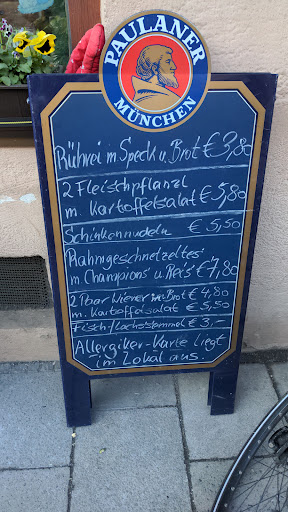 PAULANER
MÜNCHEN
Rührei m. Speck u. Brot € 3,80
2 Fleischpflanzl
m. Kartoffelsalat € 5,80
Schinkennudeln € 5,50
Rahngeschnetzeltes
m. Champions u Reis € 7,80
2 Paar Wiener Brot € 4,80
m. Kartoffelsalat € 5,50
Fisch-/Lachssemmel € 3,-
Allergiker-Karte liegt
im Lokal aus.